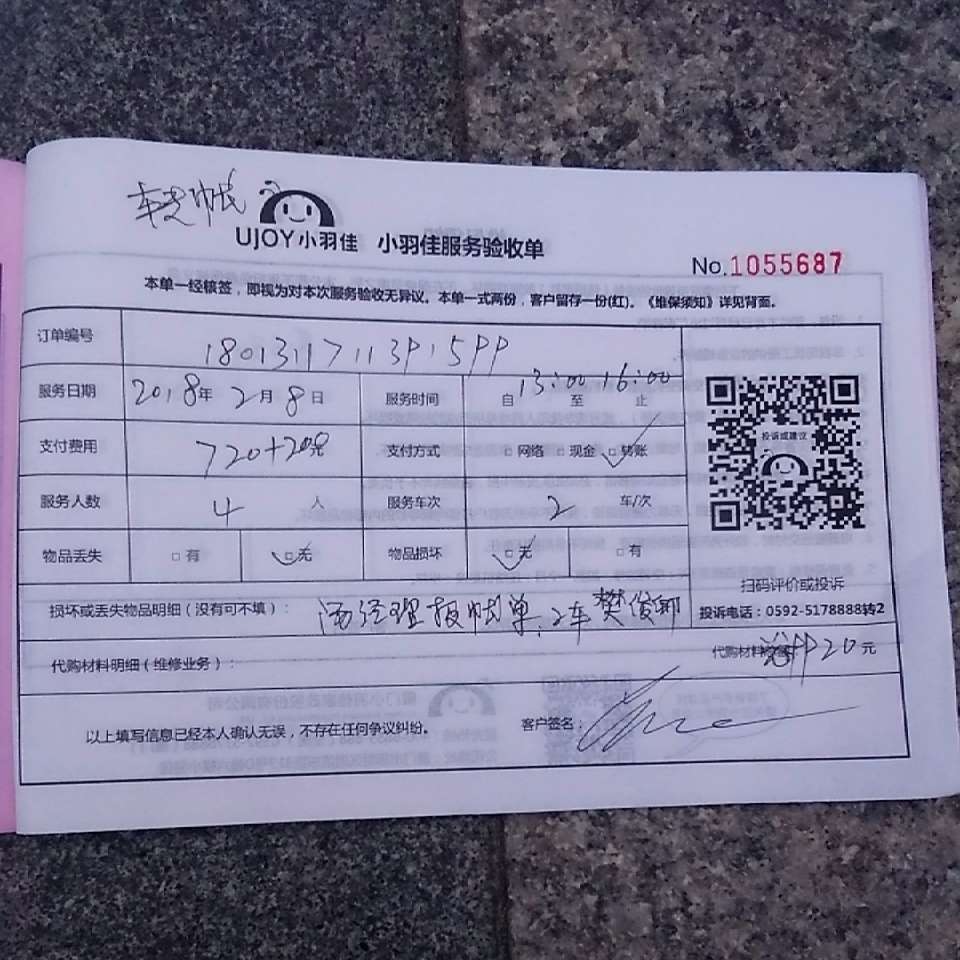 转帐
UJOY小羽佳 小羽佳服务验收单
No.1055687
本单一经核签，即视为对本次服务验收无异议。本单一式两份，客户留存一份(红)。《维保须知》详见背面。
订单编号
服务日期 2018年2月8日 服务时间 自13:00至16:00止
支付费用 720+20元 支付方式 □网络 □现金 □转账
投诉或建议
服务人数 4人 服务车次 2车/次
物品丢失 □有 □无 物品损坏 □无 □有
扫码评价或投诉
投诉电话：0592-5178888转2
损坏或丢失物品明细（没有可不填）： 经理报帐单，2车樊俊
代购材料明细（维修业务）： 代购材料 20元
以上填写信息已经本人确认无误，不存在任何争议纠纷。 客户签名：